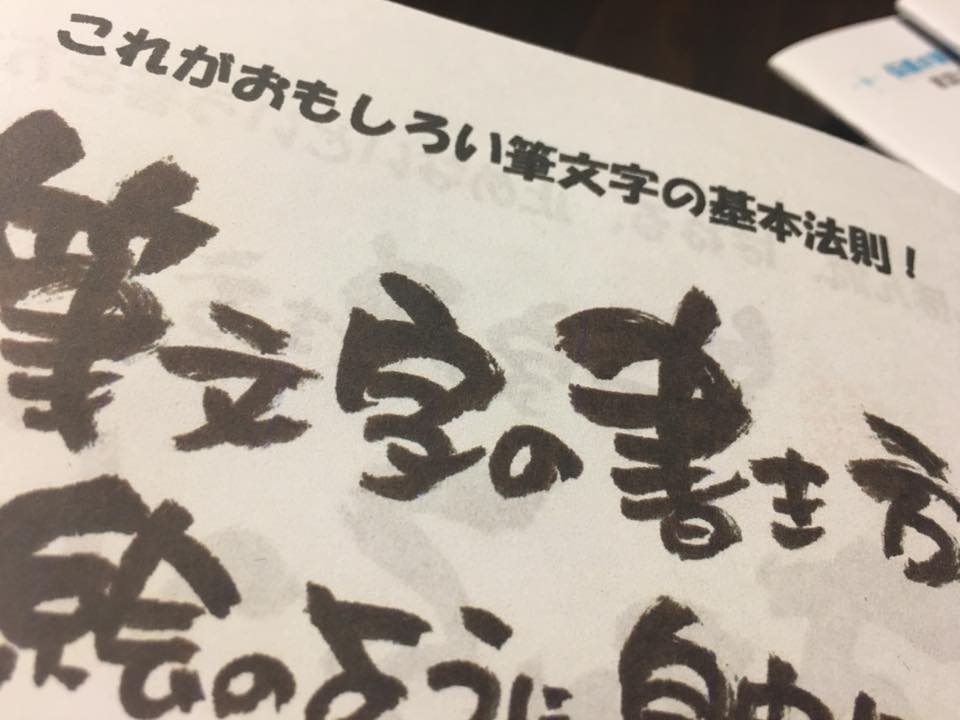 これがおもしろい筆文字の基本法則！
筆文字の書き方
絵のように自由に